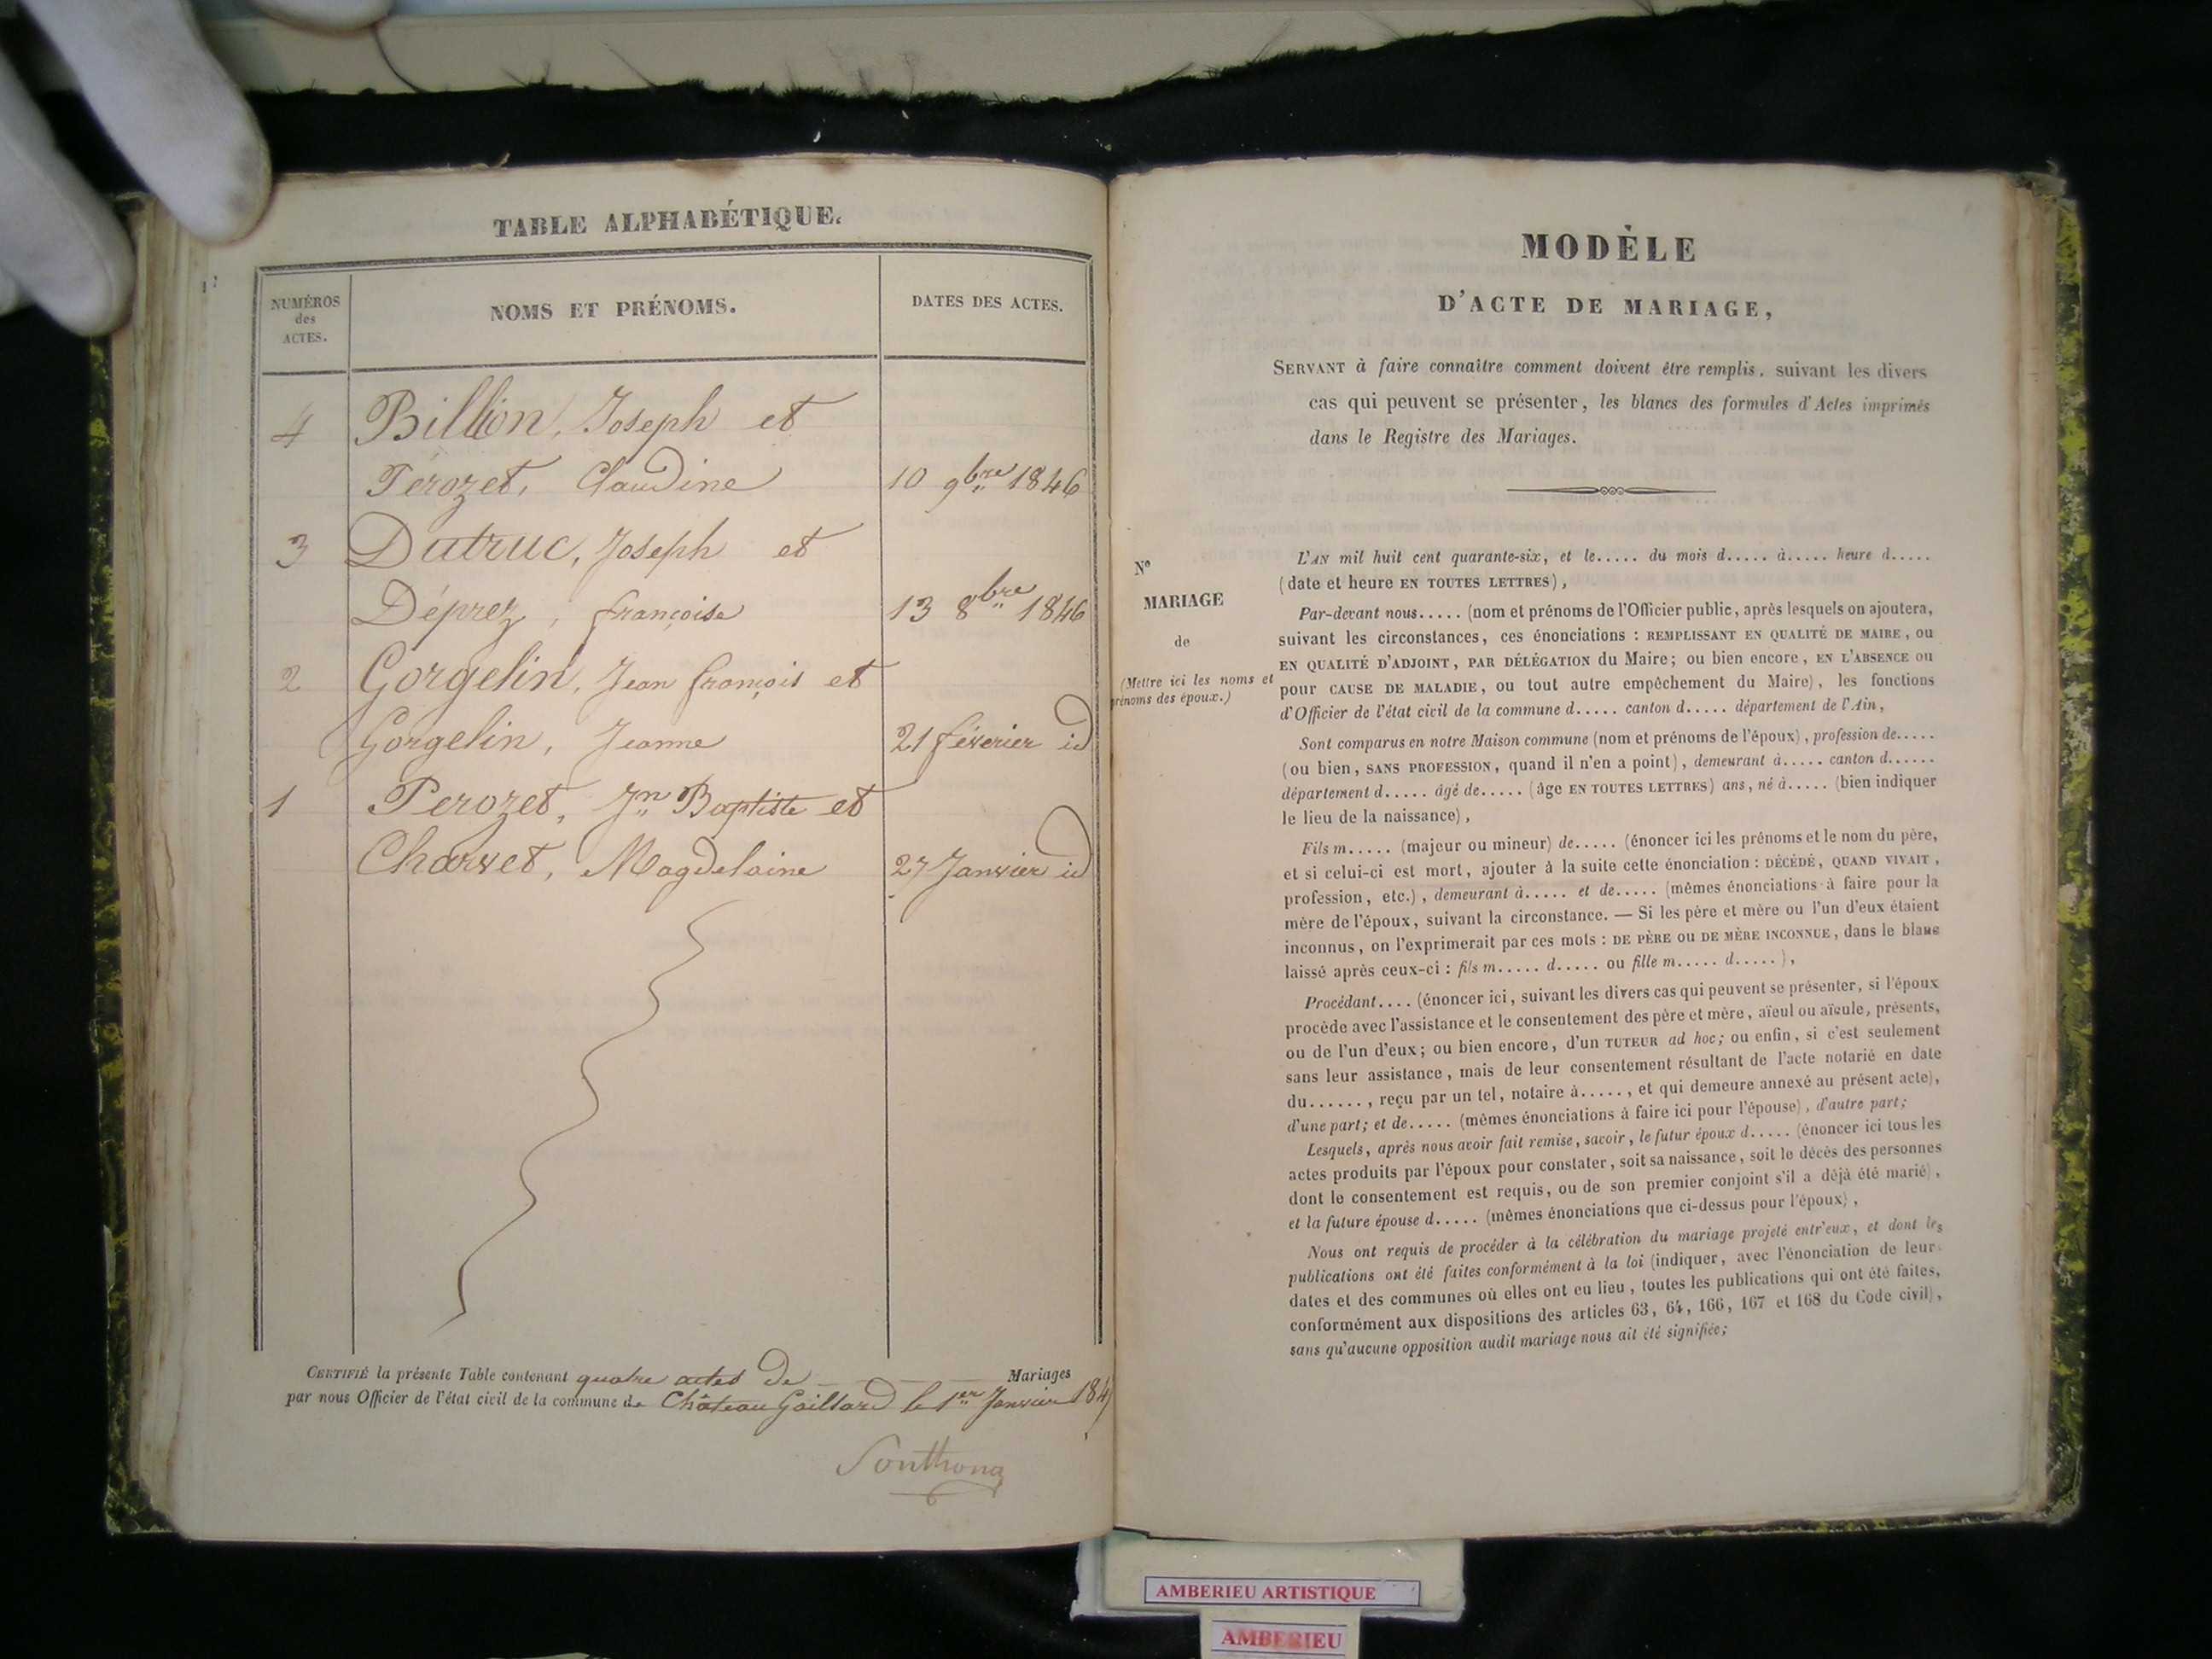 TABLE ALPHABÉTIQUE.
NUMÉROS des ACTES.
NOMS ET PRÉNOMS.
DATES DES ACTES.
4 Billion, Joseph et
Perozet, Claudine 10 9bre 1846
3 Dutruc, Joseph et
Déprez, françoise 13 8bre 1846
2 Gorgelin, Jean françois et
Gorgelin, Jeanne 21 février id
1 Perozet, Jn Baptiste et
Charvet, Magdelaine 27 Janvier id
CERTIFIÉ la présente Table contenant quatre actes de Mariages
par nous Officier de l'état civil de la commune de Château Gaillard le 1er Janvier 184
MODÈLE
D'ACTE DE MARIAGE,
SERVANT à faire connaître comment doivent être remplis, suivant les divers
cas qui peuvent se présenter, les blancs des formules d'Actes imprimés
dans le Registre des Mariages.
N°
MARIAGE
de
(Mettre ici les noms et
prénoms des époux.)
L'AN mil huit cent quarante-six, et le..... du mois d..... à..... heure d.....
(date et heure EN TOUTES LETTRES),
Par-devant nous..... (nom et prénoms de l'Officier public, après lesquels on ajoutera,
suivant les circonstances, ces énonciations : REMPLISSANT EN QUALITÉ DE MAIRE, ou
EN QUALITÉ D'ADJOINT, PAR DÉLÉGATION du Maire; ou bien encore, EN L'ABSENCE ou
pour CAUSE DE MALADIE, ou tout autre empêchement du Maire), les fonctions
d'Officier de l'état civil de la commune d..... canton d..... département de l'Ain,
Sont comparus en notre Maison commune (nom et prénoms de l'époux), profession de.....
(ou bien, SANS PROFESSION, quand il n'en a point), demeurant à..... canton d......
département d..... âgé de..... (âge EN TOUTES LETTRES) ans, né à..... (bien indiquer
le lieu de la naissance),
Fils m..... (majeur ou mineur) de..... (énoncer ici les prénoms et le nom du père,
et si celui-ci est mort, ajouter à la suite cette énonciation : DÉCÉDÉ, QUAND VIVAIT,
profession, etc.), demeurant à..... et de..... (mêmes énonciations à faire pour la
mère de l'époux, suivant la circonstance. — Si les père et mère ou l'un d'eux étaient
inconnus, on l'exprimerait par ces mots : DE PÈRE ou DE MÈRE INCONNUE, dans le blanc
laissé après ceux-ci : fils m..... d..... ou fille m..... d.....),
Procédant.... (énoncer ici, suivant les divers cas qui peuvent se présenter, si l'époux
procède avec l'assistance et le consentement des père et mère, aïeul ou aïeule, présents,
ou de l'un d'eux; ou bien encore, d'un TUTEUR ad hoc; ou enfin, si c'est seulement
sans leur assistance, mais de leur consentement résultant de l'acte notarié en date
du......, reçu par un tel, notaire à....., et qui demeure annexé au présent acte),
d'une part; et de..... (mêmes énonciations à faire ici pour l'épouse), d'autre part;
Lesquels, après nous avoir fait remise, savoir, le futur époux d..... (énoncer ici tous les
actes produits par l'époux pour constater, soit sa naissance, soit le décès des personnes
dont le consentement est requis, ou de son premier conjoint s'il a déjà été marié),
et la future épouse d..... (mêmes énonciations que ci-dessus pour l'époux),
Nous ont requis de procéder à la célébration du mariage projeté entr'eux, et dont les
publications ont été faites conformément à la loi (indiquer, avec l'énonciation de leurs
dates et des communes où elles ont eu lieu, toutes les publications qui ont été faites,
conformément aux dispositions des articles 63, 64, 166, 167 et 168 du Code civil),
sans qu'aucune opposition audit mariage nous ait été signifiée;
AMBERIEU ARTISTIQUE
AMBERIEU